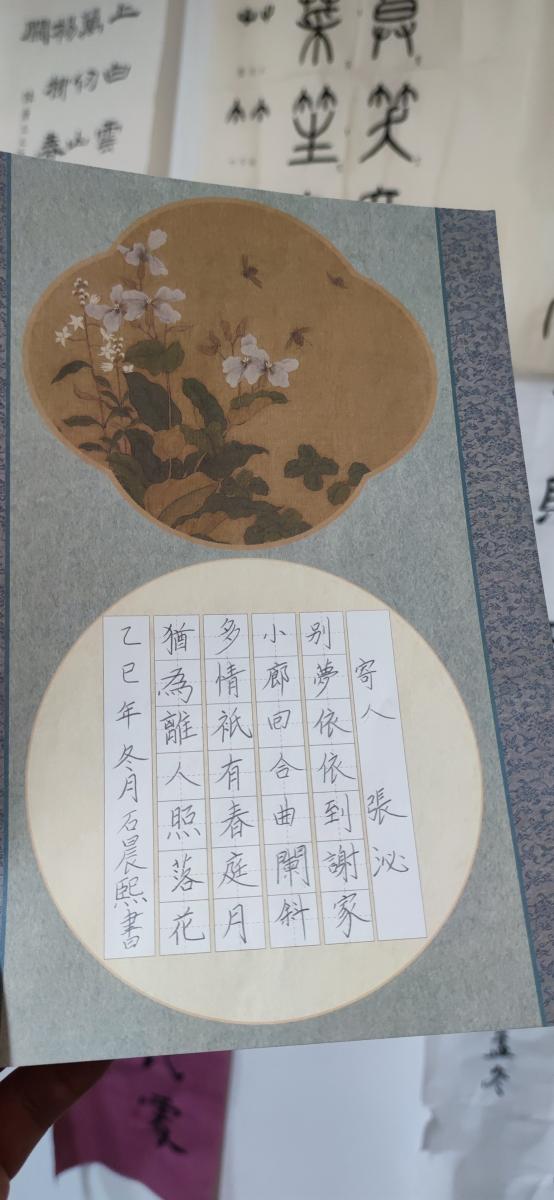 寄人 張泌
别夢依依到謝家
小廊回合曲闌斜
多情祇有春庭月
猶為離人照落花
乙巳年冬月石晨熙書
上曲雲
萬仞山